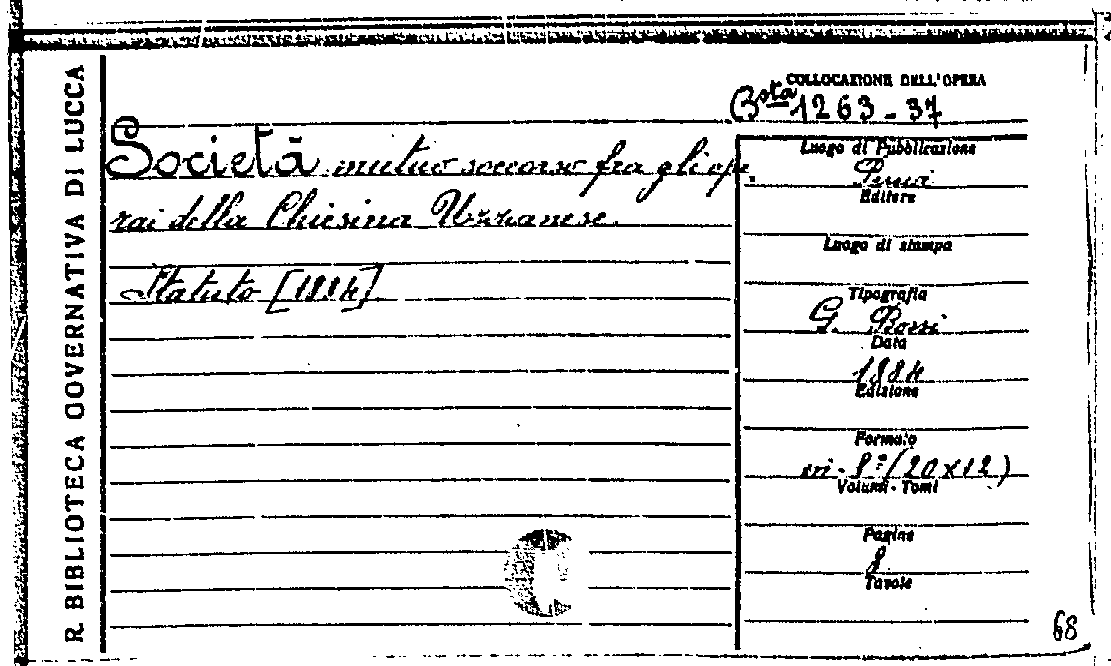 R BIBLIOTECA GOVERNATIVA DI LUCCA
COLLOCAZIONE DELL'OPERA
B.sta 1263 - 37
Società mutuo soccorso fra gli ope-
rai della Chiesina Uzzanese.
Statuto [1884]
Luogo di Pubblicazione
Pescia
Editore
Luogo di stampa
Tipografia
G. Rossi
Data
1884
Edizione
Formato
in-8º (20x12)
Volumi - Tomi
Pagine
8
Tavole
68